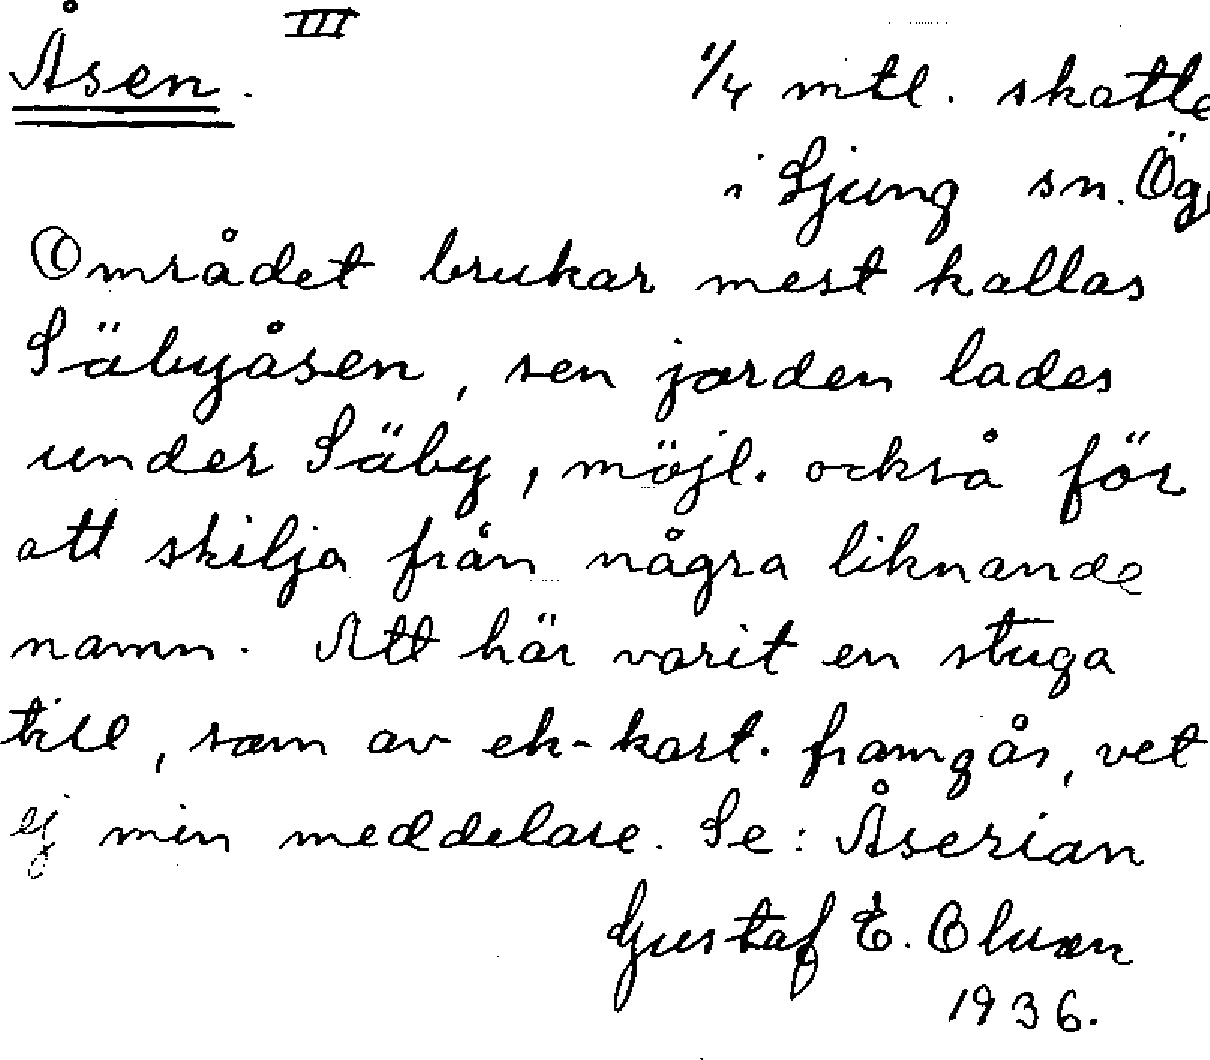 III
Åsen. 1/4 mtl. skatte
i Ljung sn. Ög.
Området brukar mest kallas
Säbyåsen, sen jorden lades
under Säby, möjl. också för
att skilja från några liknande
namn. Att här varit en stuga
till, som av ek-kart. framgår, vet
ej min meddelare. Se: Åserian
Gustaf E. Oluen
1936.